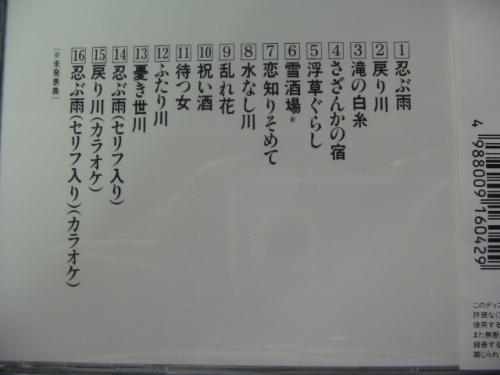 1 忍ぶ雨
2 戻り川
3 滝の白糸
4 さざんかの宿
5 浮草ぐらし
6 雪酒場※
7 恋知りそめて
8 水なし川
9 乱れ花
10 祝い酒
11 待つ女
12 ふたり川
13 憂き世川
14 忍ぶ雨(セリフ入り)
15 戻り川(カラオケ)
16 忍ぶ雨(セリフ入り)(カラオケ)
[※未発表曲]
4 988009 160429
このディス
許諾なく
使用する
また無断
録音する
禁じられ